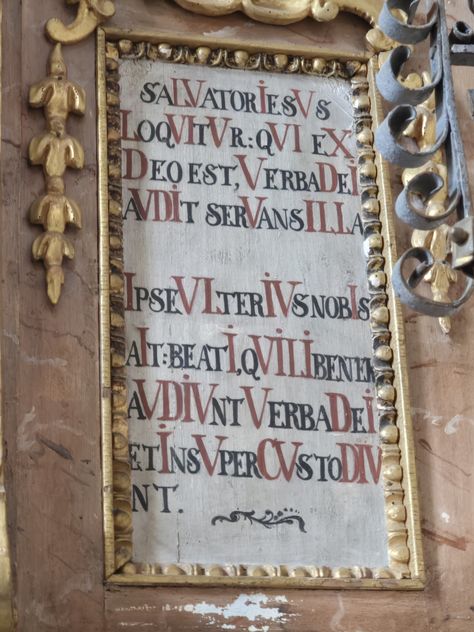 SALVATOR IESVS
LOQVITVR: QVI EX
DEO EST, VERBA DEI
AVDIT SERVANS ILLA
IPSE VLTERIVS NOBIS
AIT: BEATI, QVI
AVDIVNT VERBA DEI
ET INSVPER CVSTODIV
NT.